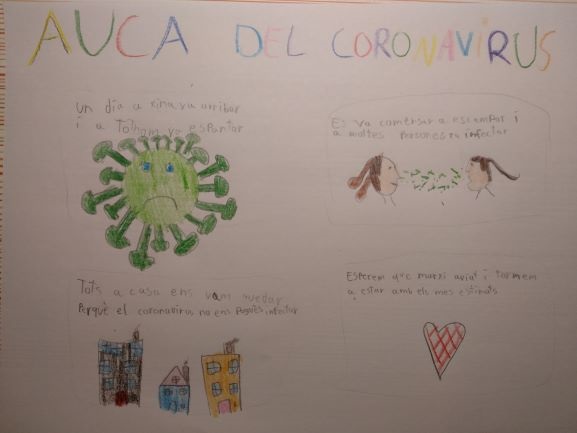 AUCA DEL CORONAVIRUS
Un día a xina va arribar
i a Tothom va espantar
Es va comensar a escampar i
a moltes persones va infectar
Tots a casa ens vam quedar
Perquè el coronavirus no ens Pogués infectar
Esperem que marxi aviat i tornem
a estar amb els mes estimats